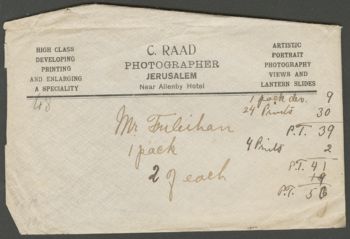 HIGH CLASS
DEVELOPING
PRINTING
AND ENLARGING
A SPECIALITY
C. RAAD
PHOTOGRAPHER
JERUSALEM
Near Allenby Hotel
ARTISTIC
PORTRAIT
PHOTOGRAPHY
VIEWS AND
LANTERN SLIDES
48
1 pack dev. 9
24 Prints 30
P.T. 39
4 Prints 2
P.T. 41
19
P.T.
Mr Fuleihan
1 pack
2 of each